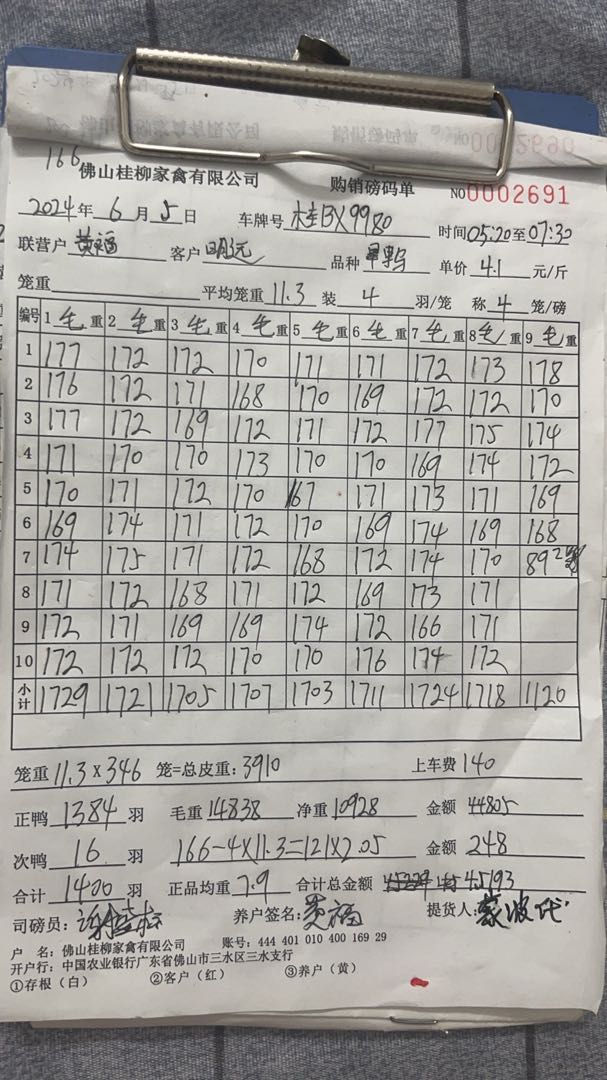 166
佛山桂柳家禽有限公司 购销磅码单 NO0002691
2024年 6 月 5 日 车牌号 桂BX9980 时间 05:20至07:30
联营户 黄福 客户 明远 品种 单价 4.1 元/斤
笼重 平均笼重 11.3 装 4 羽/笼 称 4 笼/磅
编号 1 毛重 2 毛重 3 毛重 4 毛重 5 毛重 6 毛重 7 毛重 8 毛重 9 毛重
1 177 172 172 170 171 171 172 173 178
2 176 172 171 168 170 169 172 172 170
3 177 172 169 172 171 172 177 175 174
4 171 170 170 173 170 170 169 174 172
5 170 171 172 170 167 171 173 171 169
6 169 174 171 172 170 169 174 169 168
7 174 175 171 172 168 172 174 170 89 2笼
8 171 172 168 171 172 169 173 171
9 172 171 169 169 174 172 166 171
10 172 172 172 170 170 176 174 172
小计 1729 1721 1705 1707 1703 1711 1724 1718 1120
笼重 11.3×346 笼=总皮重: 3910 上车费 140
正鸭 1384 羽 毛重 14838 净重 10928 金额 44805
次鸭 16 羽 166-4×11.3=121×2.05 金额 248
合计 1400 羽 正品均重 7.9 合计总金额 45193
司磅员: 养户签名: 黄福 提货人:
户 名: 佛山桂柳家禽有限公司 账号: 444 401 010 400 169 29
开户行: 中国农业银行广东省佛山市三水区三水支行
①存根（白） ②客户（红） ③养户（黄）